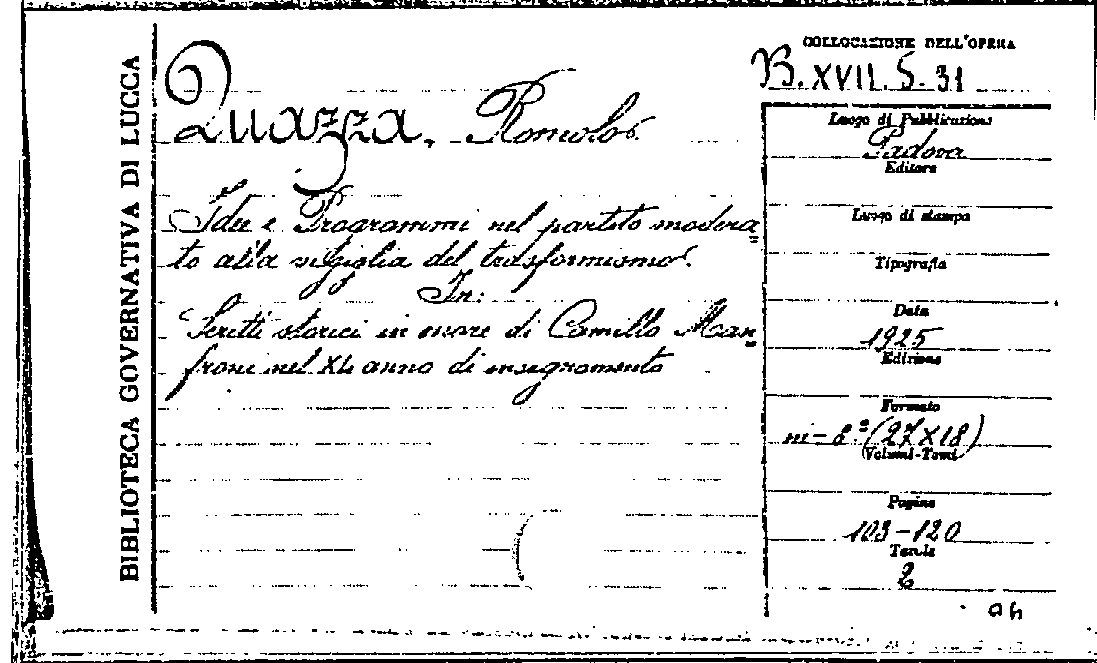 BIBLIOTECA GOVERNATIVA DI LUCCA
Quazza, Romolo.
Idee e Programmi nel partito modera
to alla vigiglia del trasformismo.
In:
Scritti storici in onore di Camillo Man
froni nel XL anno di insegnamento
COLLOCAZIONE DELL'OPERA
B. XVII. S. 31
Luogo di Pubblicazione
Padova
Editore
Luogo di stampa
Tipografia
Data
1925
Edizione
Formato
in-8.° (27x18)
Volumi-Tomi
Pagine
103-120
Tavole